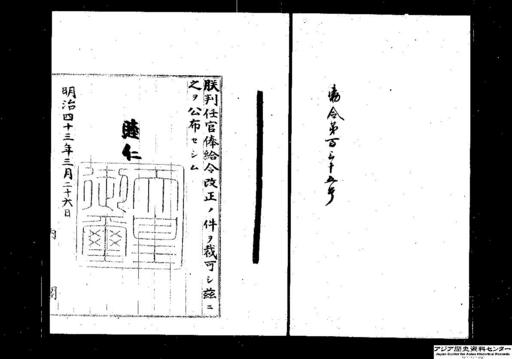 勅令第百三十五号
朕判任官俸給令改正ノ件ヲ裁可シ茲ニ
之ヲ公布セシム
睦仁
天皇御璽
明治四十三年三月二十六日
内閣
アジア歴史資料センター
Japan Center for Asian Historical Records